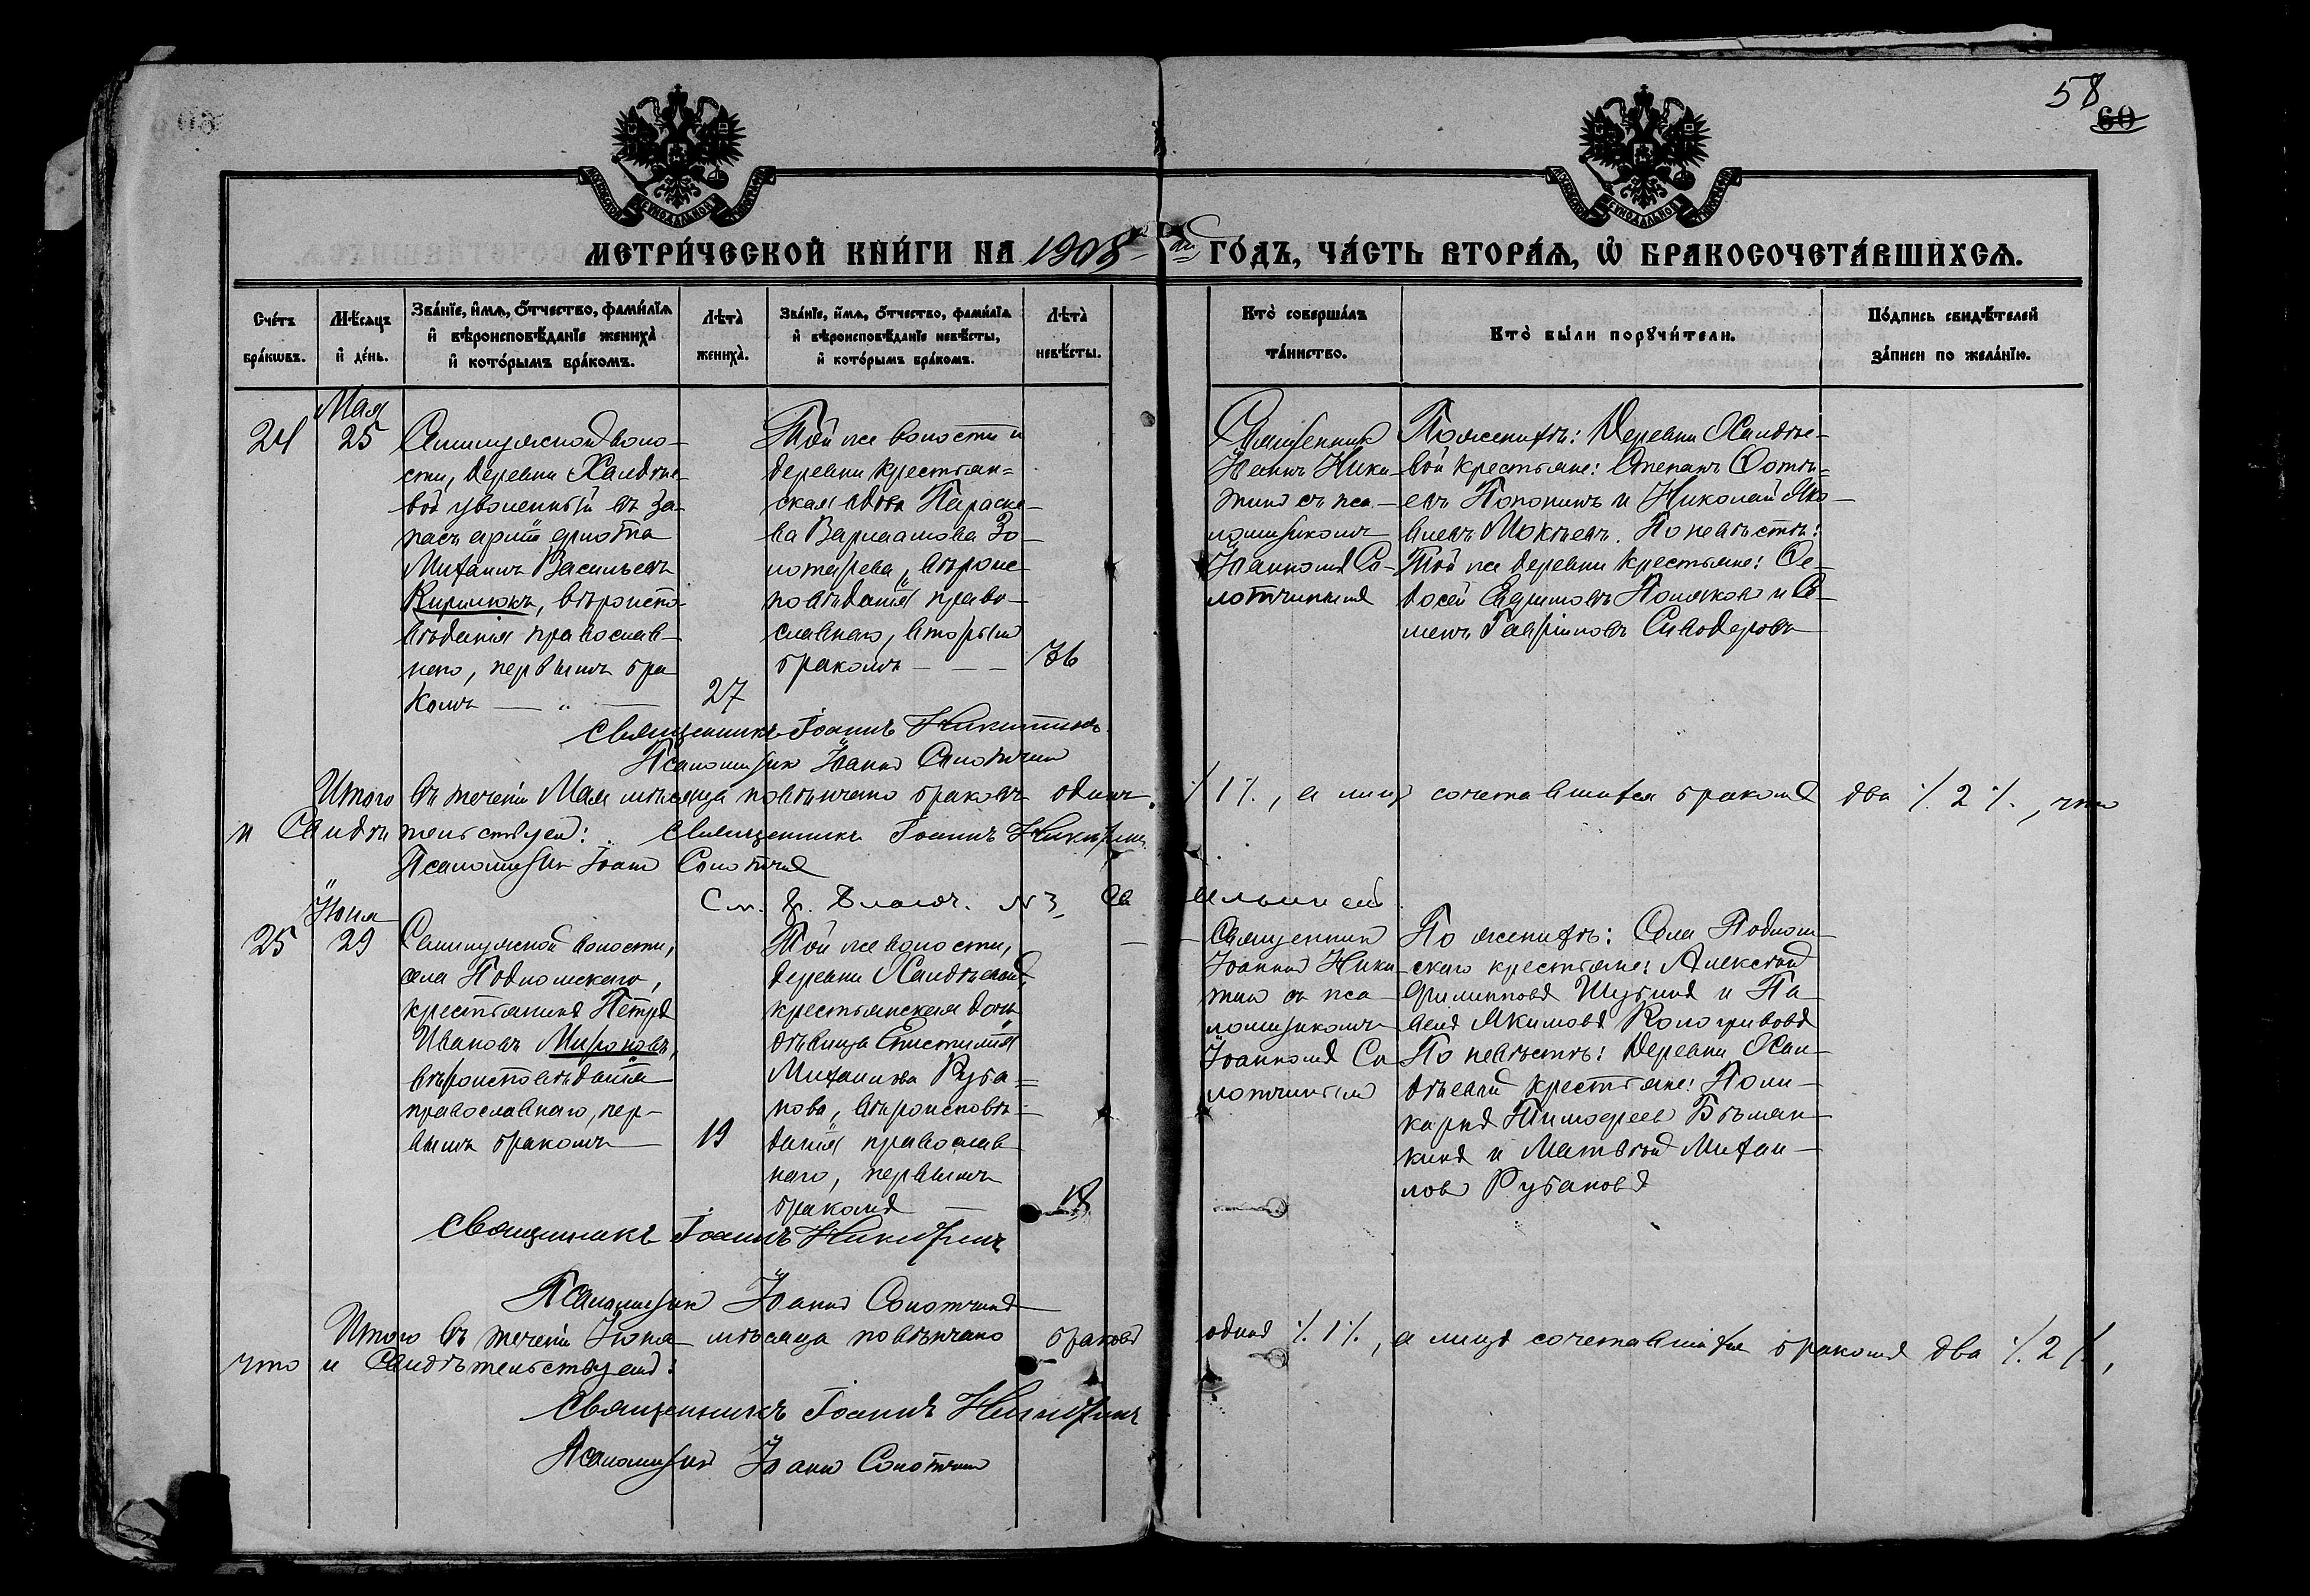 58
60
МЕТРИ́ЧЕСКОЙ КНИ́ГИ НА 1908 й ГО́ДЪ, ЧА́СТЬ ВТОРА́Ѧ, Ѡ҆ БРАКОСОЧЕТА́ВШИХСѦ.
Сче́тъ бра́кѡвъ.
Мѣ́сяцъ и҆ де́нь.
Зва́нїе, и҆́мѧ, ѻ҆́тчество, фами́лїѧ
и҆ вѣроисповѣ́данїе жениха̀
и҆ кото́рымъ бра́комъ.
Лѣта̀ жениха̀.
Зва́нїе, и҆́мѧ, ѻ҆́тчество, фами́лїѧ
и҆ вѣроисповѣ́данїе невѣ́сты,
и҆ кото́рымъ бра́комъ.
Лѣта̀ невѣ́сты.
Кто̀ соверша́лъ та́инство.
Кто̀ бы́ли порꙋчи́тели.
По́дпись свидѣ́телей за́писи по жела́нїю.
24
Мая
25
Семилужской воло-
сти, деревни Халдѣе-
вой уволенный въ за-
пасъ арміи
Михаилъ Васильевъ
Кирилюкъ, вѣроиспо-
вѣданія православ-
наго, первымъ бра
комъ — " —
27
Той же волости и
деревни крестьян-
ская вдова Параске-
ва Варлаамова Зо-
лотарева, вѣроис
повѣданія право-
славнаго, вторым
бракомъ — — —
36
Священник
Іоаннъ Ники-
тинъ съ пса-
ломщикомъ
Іоанномъ Со-
лотчинымъ
По женихѣ: Деревни Халдѣе-
вой крестьяне: Степанъ Фоти-
евъ Попонинъ и Николай Яко-
влевъ Мокѣевъ. По невѣстѣ:
Той же деревни крестьяне: Ѳе-
досей Ефимовъ Поляковъ и Се-
менъ Гавриловъ Сиводеровъ
Священникъ Іоаннъ Никитинъ
Псаломщик Іоаннъ Солотчин
Итого въ теченіи Мая мѣсяца повѣнчано браковъ одинъ ./.1./., а лицъ сочетавшихся бракомъ два ./.2./., что
и Свидѣтельствуем: Священникъ Іоаннъ Никитин
Псаломщик Іоанн Солотчин
См. Благоч. №3,
25
Іюня
29
Семилужской волости,
села Подломскаго,
крестьянинъ Петръ
Ивановъ Мироновъ,
вѣроисповѣданія
православнаго, пер-
вымъ бракомъ —
19
Той же волости,
деревни Халдѣевой,
крестьянская дочь
дѣвица Епистимія
Михаилова Руба-
нова, вѣроисповѣ-
данія православ
наго, первымъ
бракомъ —
18
Священник
Іоаннъ Ники-
тин съ пса-
ломщикомъ
Іоанномъ Со
лотчиным
По женихѣ: Села Подлом-
скаго крестьяне: Алексѣй
Филипповъ Шубинъ и Па-
велъ Якимовъ Кологривовъ
По невѣстѣ: Деревни Хал-
дѣевой крестьяне: Поли-
карпъ Тимофеев Бѣлян-
кинъ и Матвѣй Михаи-
лов Рубановъ
Священникъ Іоаннъ Никитинъ
Псаломщик Іоаннъ Солотчинъ
Итого въ теченіи Іюня мѣсяца повѣнчано браковъ одинъ ./.1./., а лицъ сочетавшихся бракомъ два ./.2./.,
что и Свидѣтельствуемъ:
Священникъ Іоаннъ Никитинъ
Псаломщикъ Іоанн Солотчин